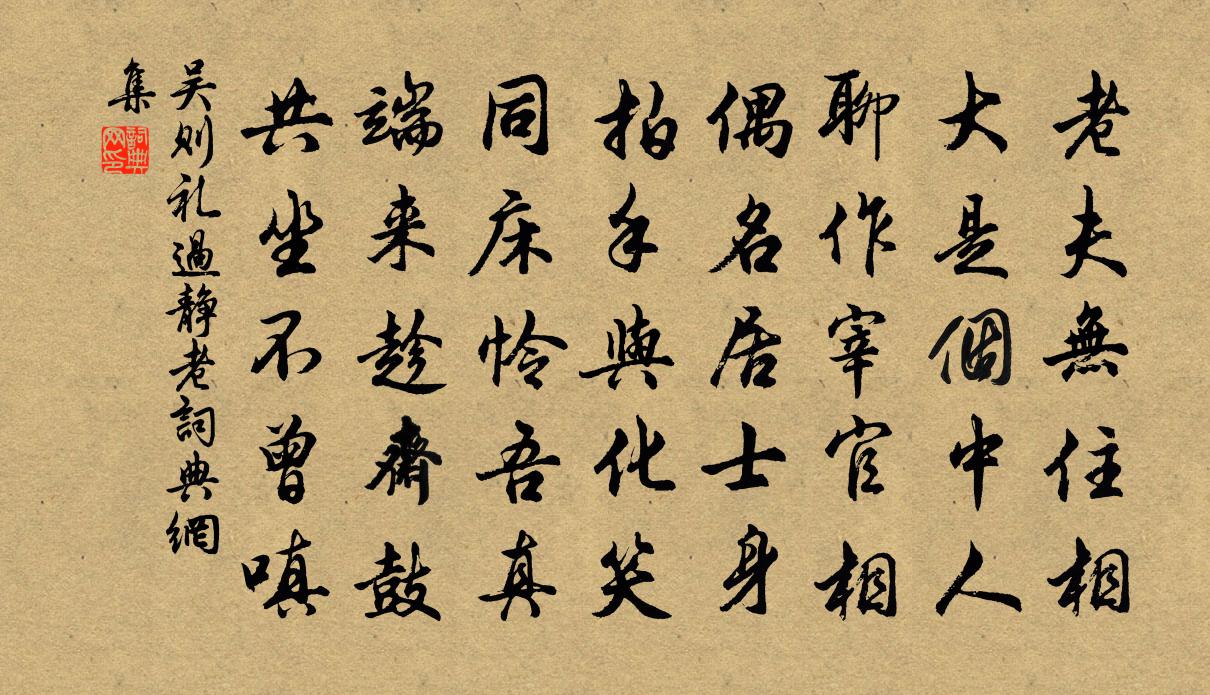 老夫無住相
大是個中人
聊作宰官相
偶名居士身
拍手與化笑
同床怜吾真
端来趁齋鼓
共坐不曾嗔
吴则礼過静老詞典網
集
詞典
网印